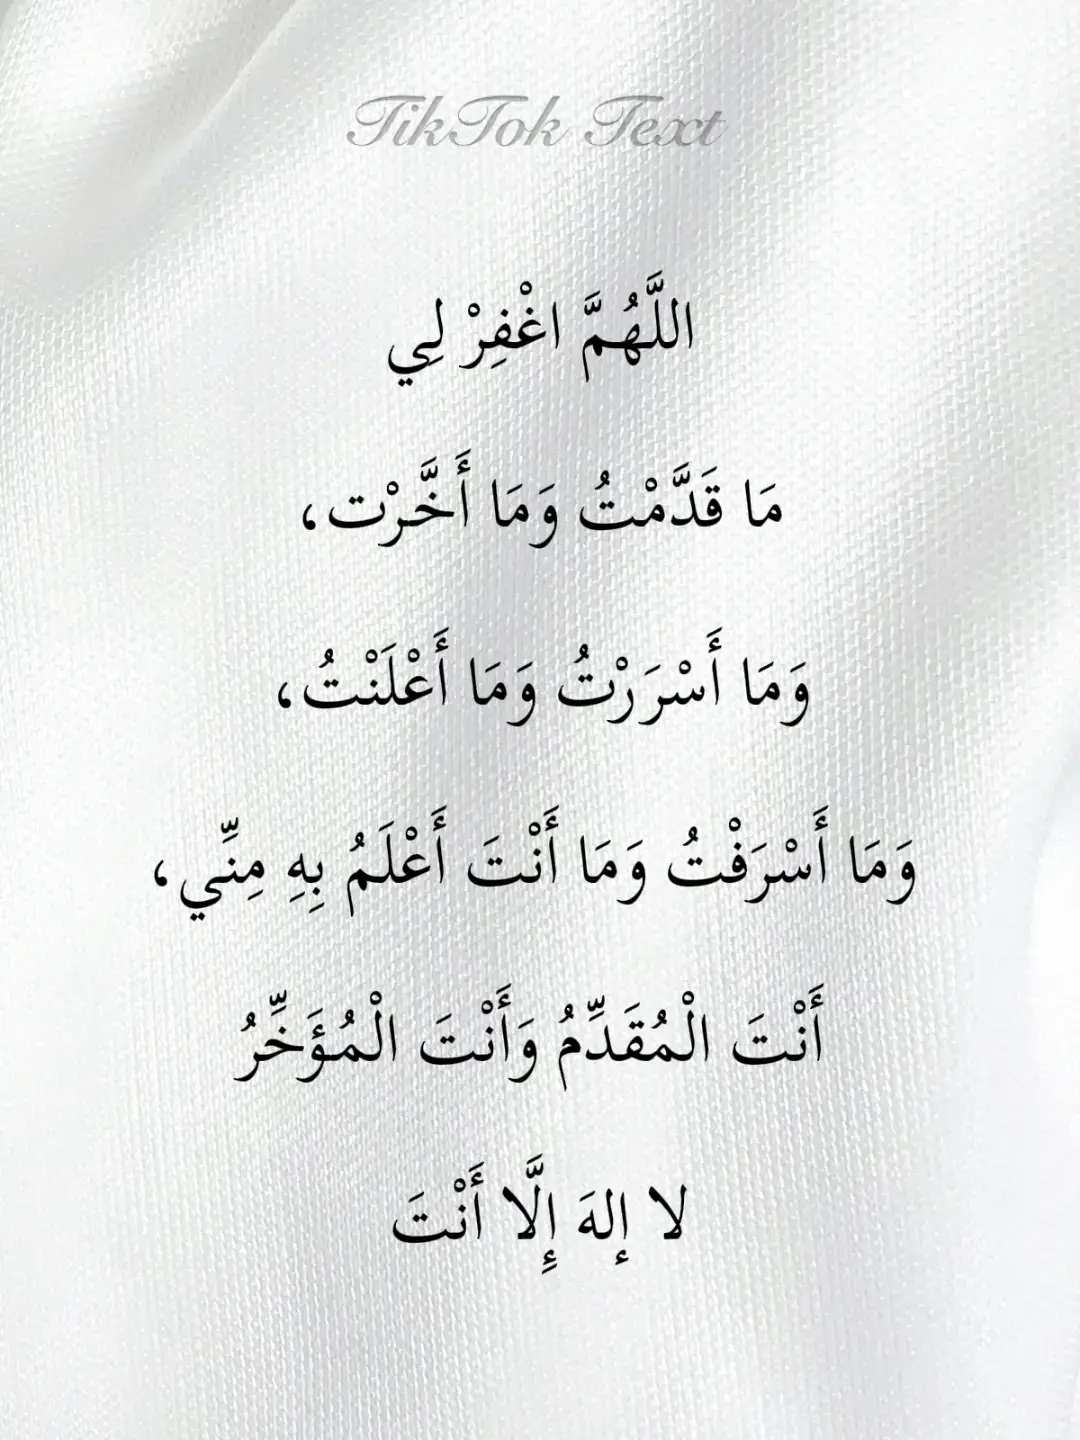 TikTok Text
اللَّهُمَّ اغْفِرْ لِي
مَا قَدَّمْتُ وَمَا أَخَّرْت،
وَمَا أَسْرَرْتُ وَمَا أَعْلَنْتُ،
وَمَا أَسْرَفْتُ وَمَا أَنْتَ أَعْلَمُ بِهِ مِنِّي،
أَنْتَ الْمُقَدِّمُ وَأَنْتَ الْمُؤَخِّرُ
لا إلهَ إِلَّا أَنْتَ